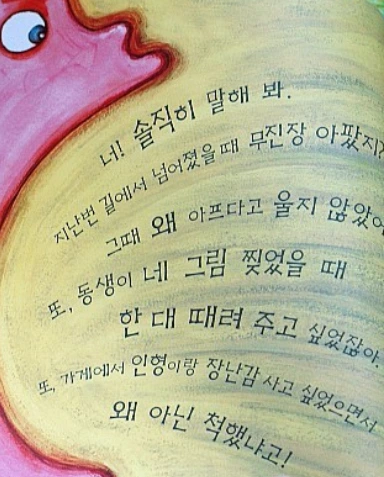 너! 솔직히 말해 봐.
지난번 길에서 넘어졌을 때 무진장 아팠지?
그때 왜 아프다고 울지 않았어
또, 동생이 네 그림 찢었을 때
한 대 때려 주고 싶었잖아.
또, 가게에서 인형이랑 장난감 사고 싶었으면서
왜 아닌 척했냐고!